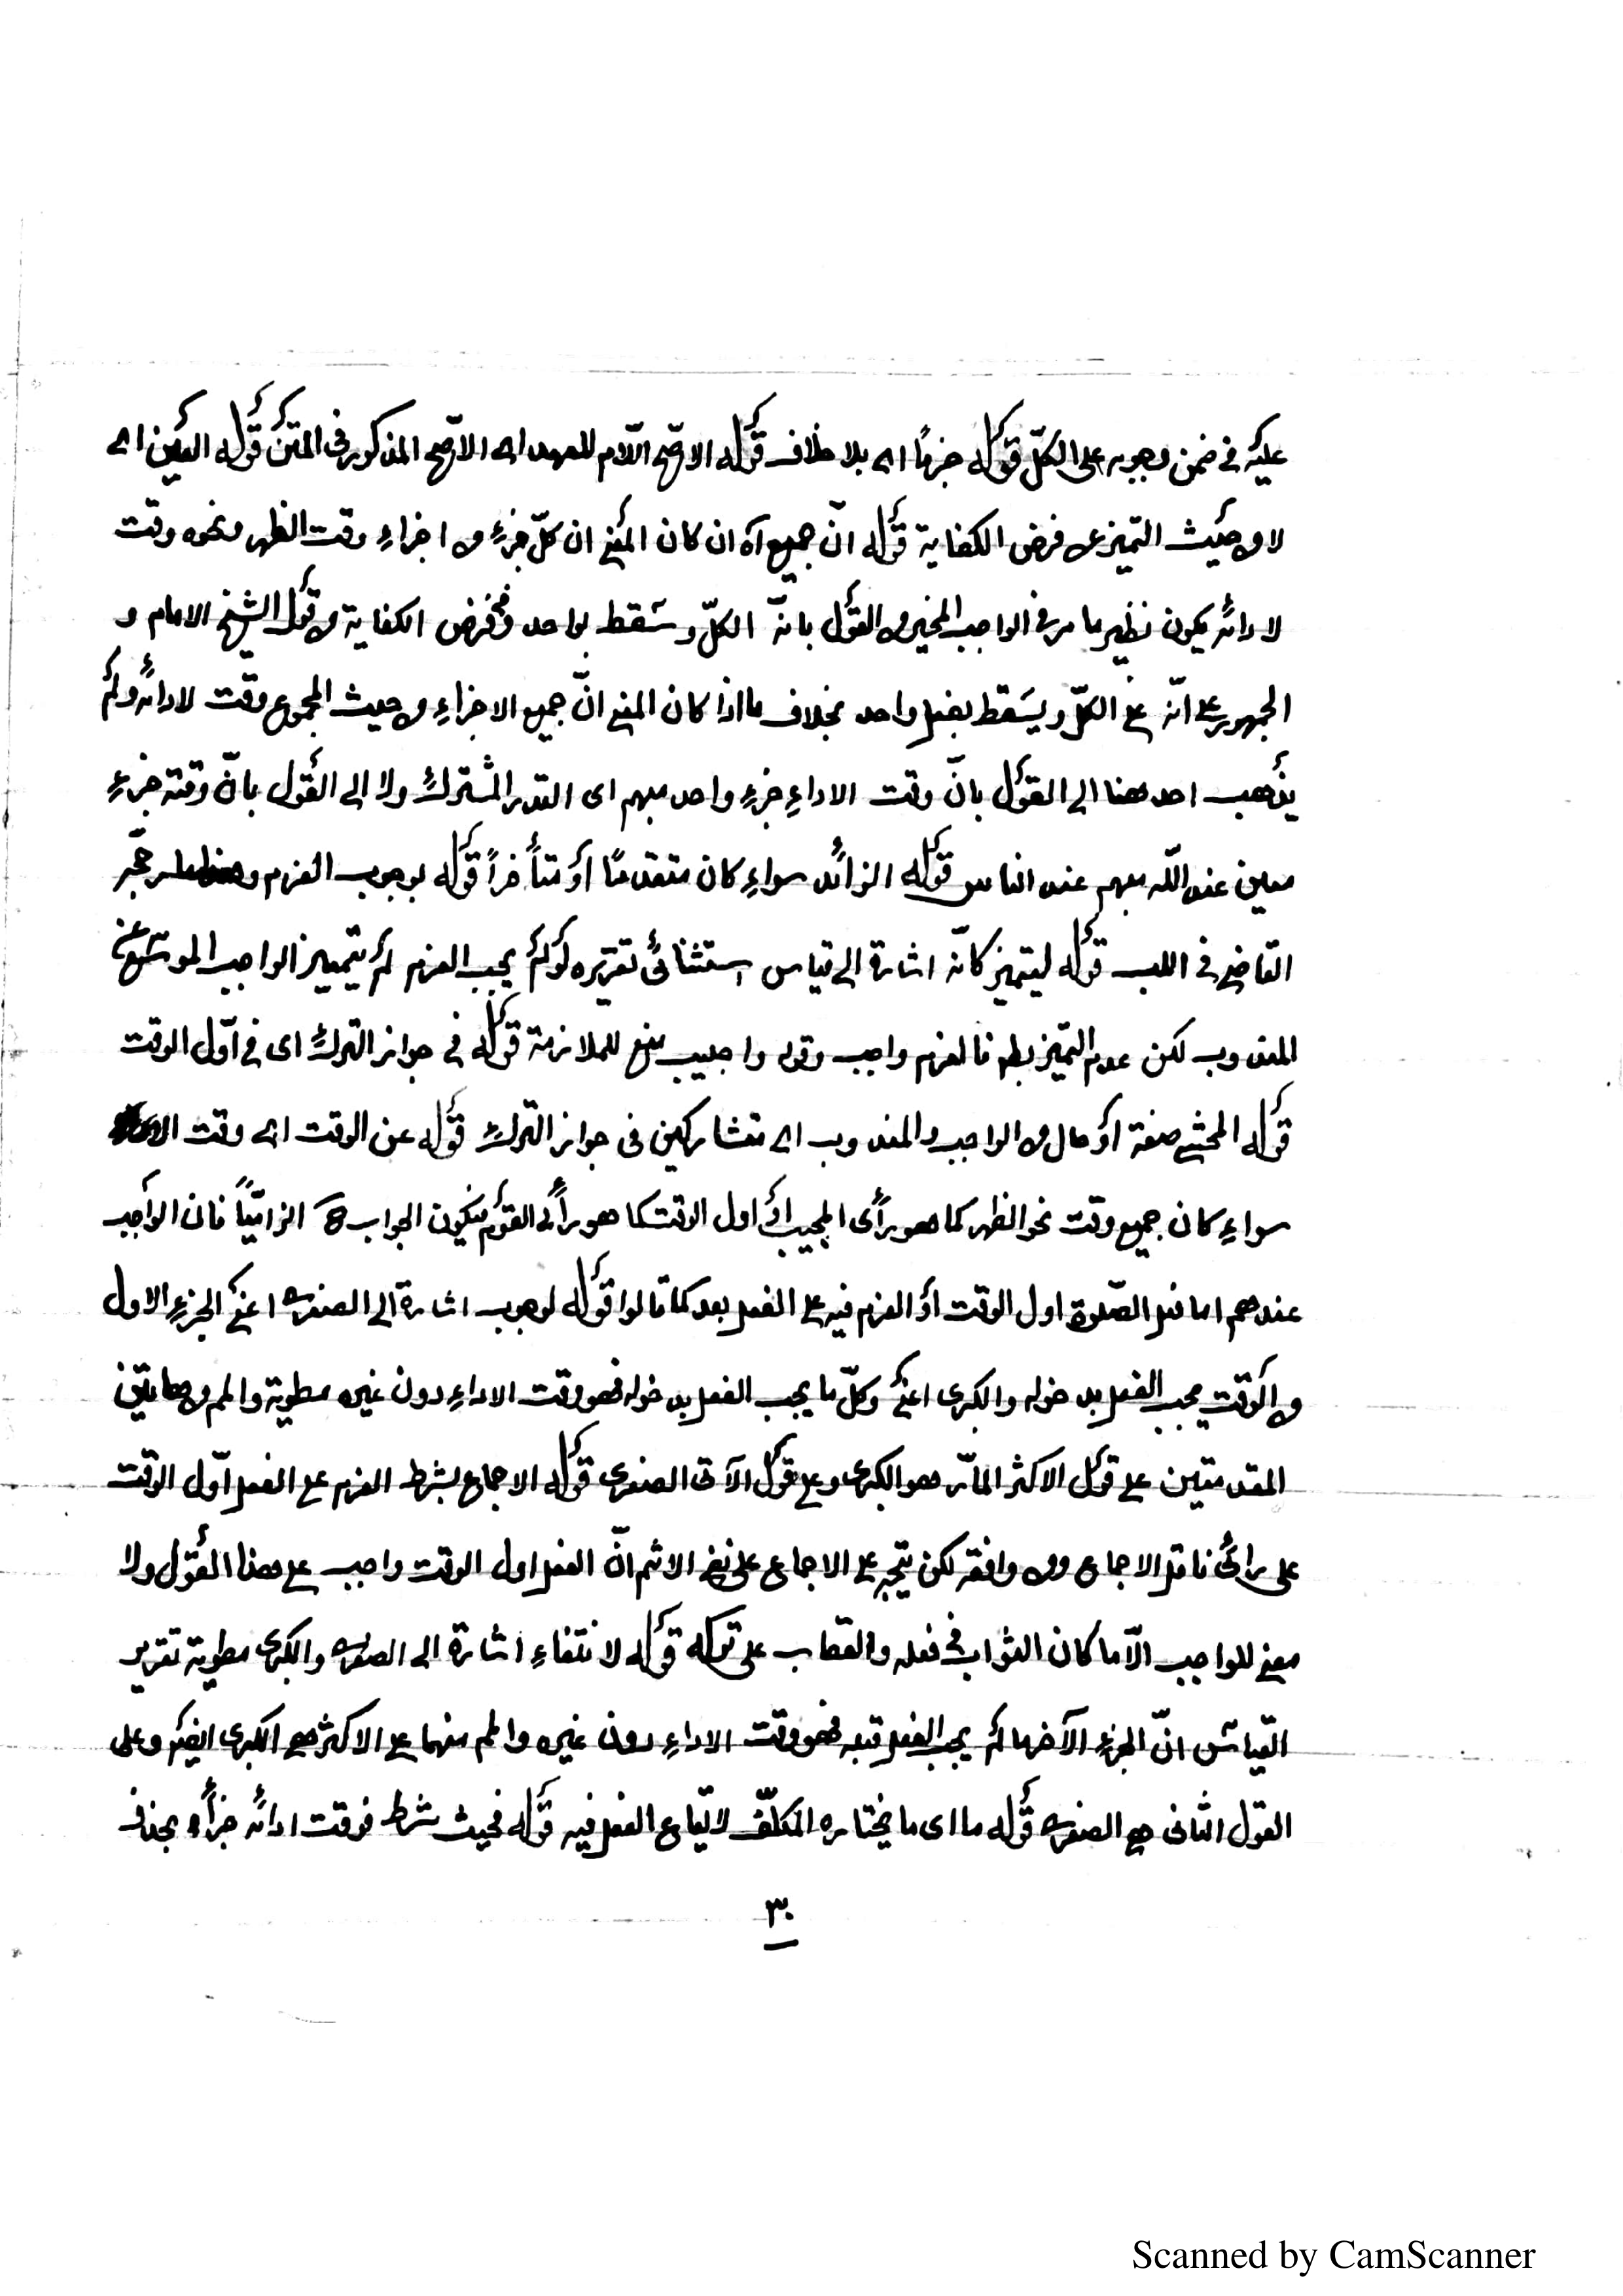 عليه في ضمن وجوبه على الكلّ قوله جزمًا اى بلا خلاف قوله الاصّح اللّام للعهد اى الاصّح المذكور فى المتن قوله العين اى
لا من حيث التميز عن فرض الكفاية قوله انّ جميع آه ان كان المعنى ان كلّ جزءٍ من اجزاءِ وقت الظهر ونحوه وقت
لادائه يكون نظير ما مر في الواجب المخير من القول بانّه الكلّ ويسقط بواحد وفى فرض الكفاية من قول الشيخ الامام و
الجمهور على انّه على الكلّ ويسقط بفعل واحد بخلاف ما اذا كان المعنى انّ جميع الاجزاءِ من حيث المجموع وقت لادائه ولم
يذهب احد ههنا الى القول بانّ وقت الاداءِ جزءٍ واحد مبهم اى القدر المشترك ولا الى القول بانّ وقته جزءٍ
معين عند اللّه مبهم عند الناس قوله الزائد سواءٍ كان متقدمًا أو متأخراً قوله بوجوب العزم
القاضي فى اللب قوله ليتميز كانّه اشارة الى قياس استثنائى تقريره لو لم يجب العزم لم يتميز الواجب الموسّع عن
المندوب لكن عدم التميز بط فالعزم واجب وقوله واجيب منع للملازمة قوله فى جواز الترك اى فى اوّل الوقت
قوله المحشي صفة أو حال من الواجب والمندوب اى متشاركين فى جواز الترك قوله عن الوقت اى وقت
سواءٍ كان جميع وقت نحو الظهر كما هو رأى المجيب أو اول الوقت كما هو رأى القوم فيكون الجواب ح الزاميّاً فان الواجب
عندهم اما فعل الصّلوة اول الوقت أو العزم فيه على الفعل بعد كما قالوا قوله لوجوب اشارة الى الصغرى اعنى الجزءِ الاول
من الوقت يجب الفعل بدخوله والكبرى اعنى وكلّ ما يجب الفعل بدخوله فهو وقت الاداءِ دون غيره مطوية والم من هاتين
المقدمتين على قول الاكثر المارّ هو الكبرى وعلى قول الآتى الصغرى قوله الاجماع بشرط العزم على الفعل اوّل الوقت
على رأى ناقل الاجماع ومن وافقه لكن يتجه على الاجماع على نفى الاثم انّ الفعل اول الوقت واجب على هذا القول ولا
معنى للواجب الّا ما كان الثواب فى فعله والعقاب على تركه قوله لانتفاءِ اشارة الى الصغرى والكبرى مطوية تقرير
القياس انّ الجزءِ الآخر ما لم يجب الفعل قبله فهو وقت الاداءِ دون غيره والم منهما على الاكثر هى الكبرى ايضا وعلى
القول الثانى هى الصغرى قوله ما اى ما يختاره المكلّف لايقاع الفعل فيه قوله فحيث شرط فوقت ادائه جزأ
٣٠
Scanned by CamScanner